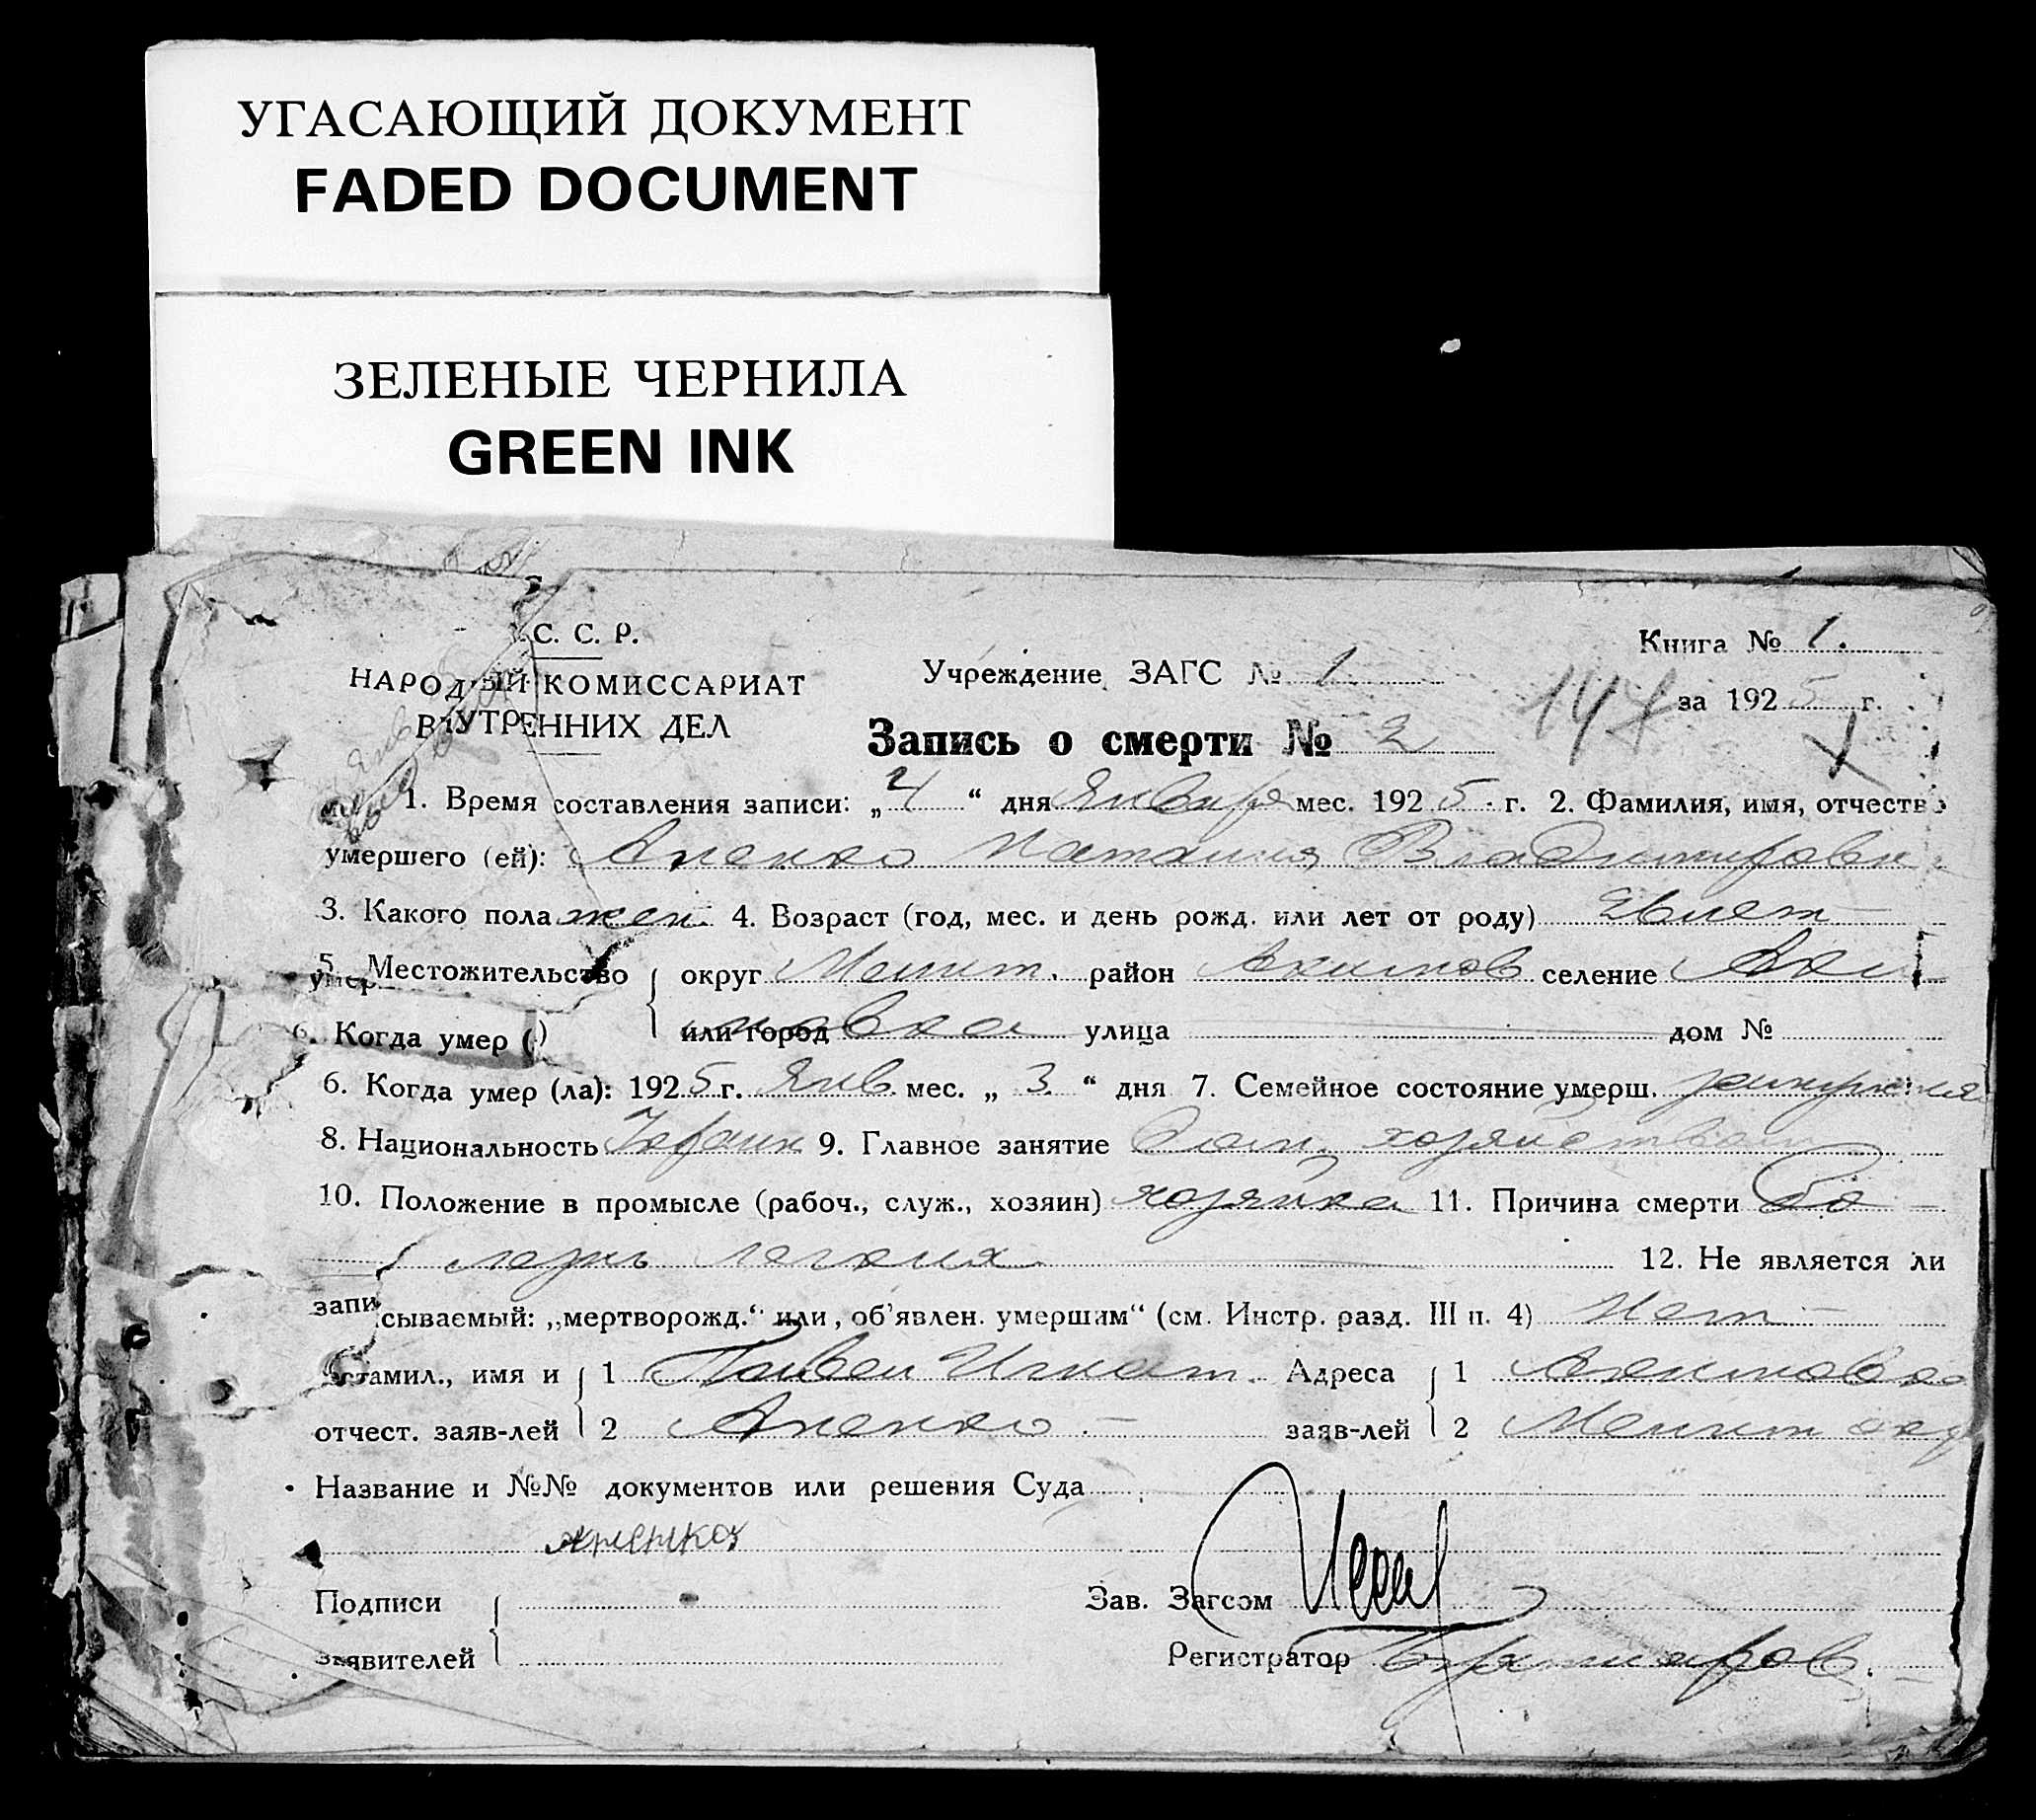 УГАСАЮЩИЙ ДОКУМЕНТ
FADED DOCUMENT
ЗЕЛЕНЫЕ ЧЕРНИЛА
GREEN INK
С. С. Р.
НАРОДНЫЙ КОМИССАРИАТ
ВНУТРЕННИХ ДЕЛ
Учреждение ЗАГС № 1
Книга № 1.
за 1925 г.
147
Запись о смерти № 2
1. Время составления записи: „4“ дня Января мес. 1925 г. 2. Фамилия, имя, отчество
умершего (ей): Ананко Наталия Владимировн
3. Какого пола жен. 4. Возраст (год, мес. и день рожд. или лет от роду) лет
5. Местожительство округ Мелит. район Акимов селение Аки
умер
или город мовка улица дом №
6. Когда умер ( )
6. Когда умер (ла): 1925 г. Янв. мес. „3“ дня 7. Семейное состояние умерш. замужняя
8. Национальность Украин 9. Главное занятие хозяйством
10. Положение в промысле (рабоч., служ., хозяин) хозяйка 11. Причина смерти бо
лезнь легких 12. Не является ли
записываемый: „мертворожд.“ или, об'явлен. умершим“ (см. Инстр. разд. III п. 4) Нет
Фамил., имя и 1 Павел Игнат. Адреса 1 Акимовка
отчест. заяв-лей 2 Ананко заяв-лей 2 Мелит окр
Название и №№ документов или решения Суда
Подписи Зав. Загсом
заявителей Регистратор